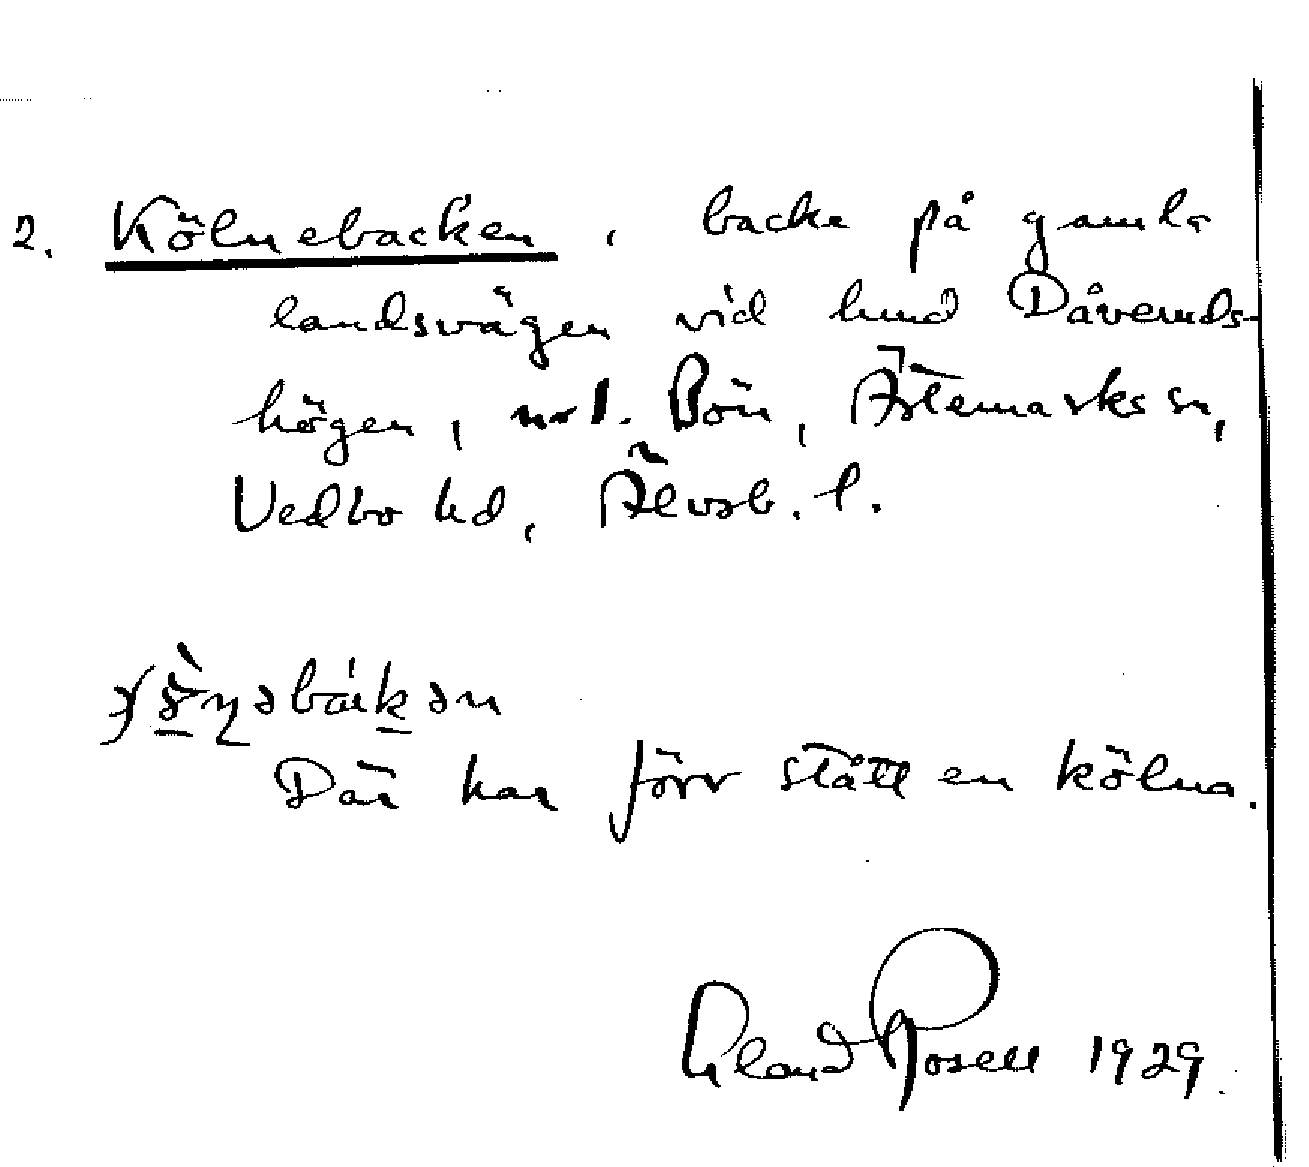 2. Kölnebacken, backe på gamla
landsvägen vid hmd Dåveruds-
högen, nol. Bön, Ärtemarks sn,
Vedbo hd, Älvsb. l.
Där har förr stått en kölna.
Erland Rosell 1929.